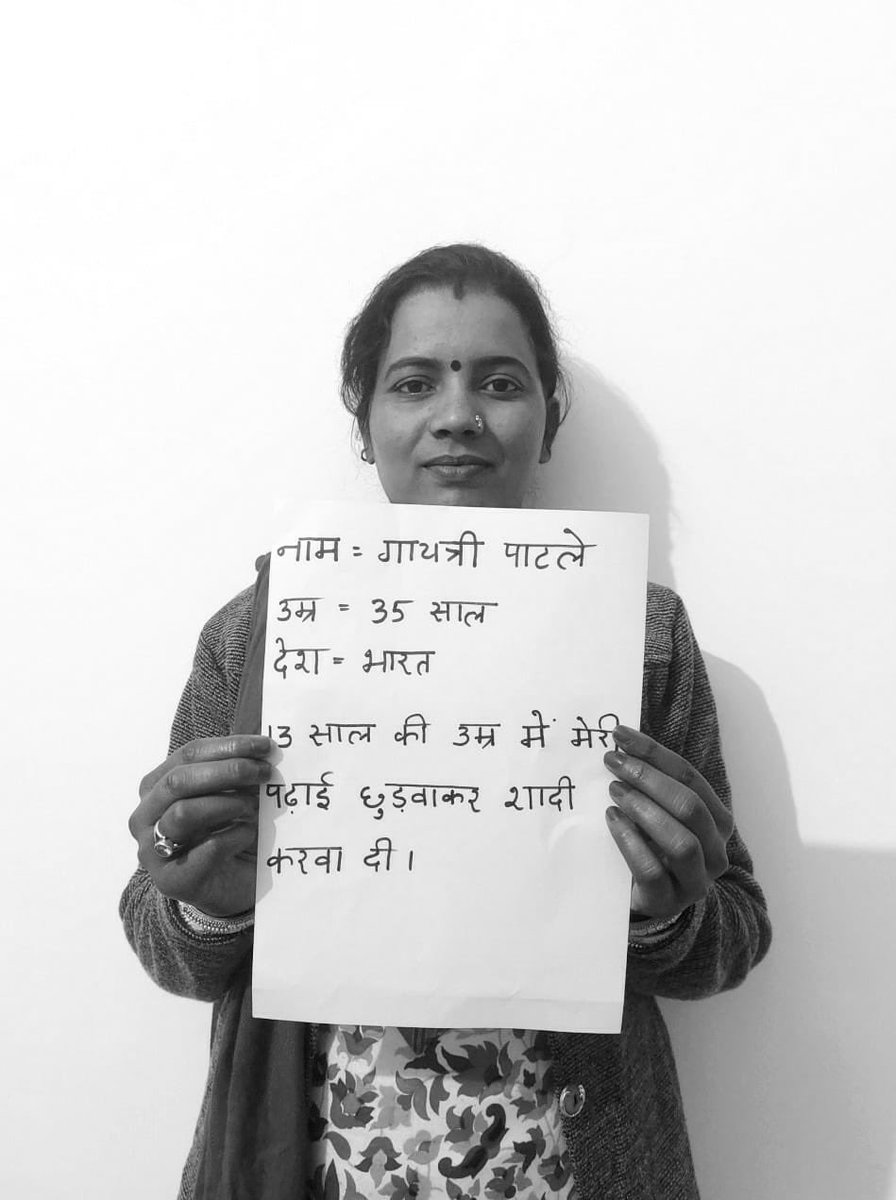 नाम = गायत्री पाटले
उम्र = 35 साल
देश = भारत
13 साल की उम्र में मेरी
पढ़ाई छुड़वाकर शादी
करवा दी।